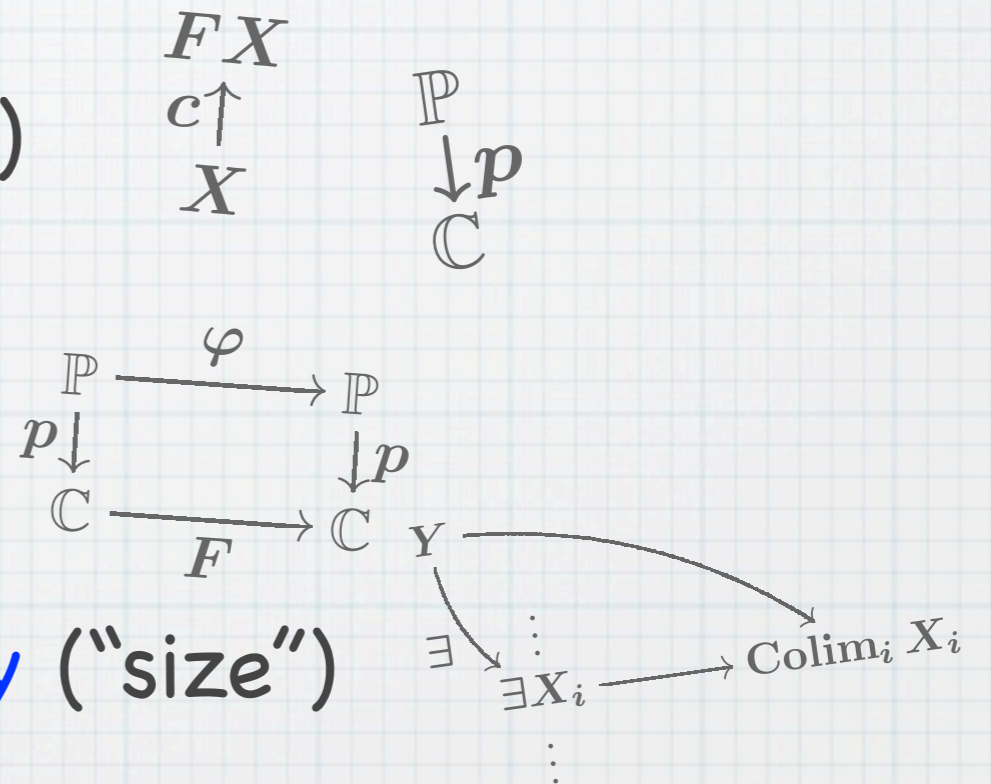 )
FX
c
X
ℙ
p
ℂ
φ
ℙ ℙ
p p
ℂ ℂ
F
Y
∃
⋮
∃Xᵢ
Colimᵢ Xᵢ
⋮
y ("size")